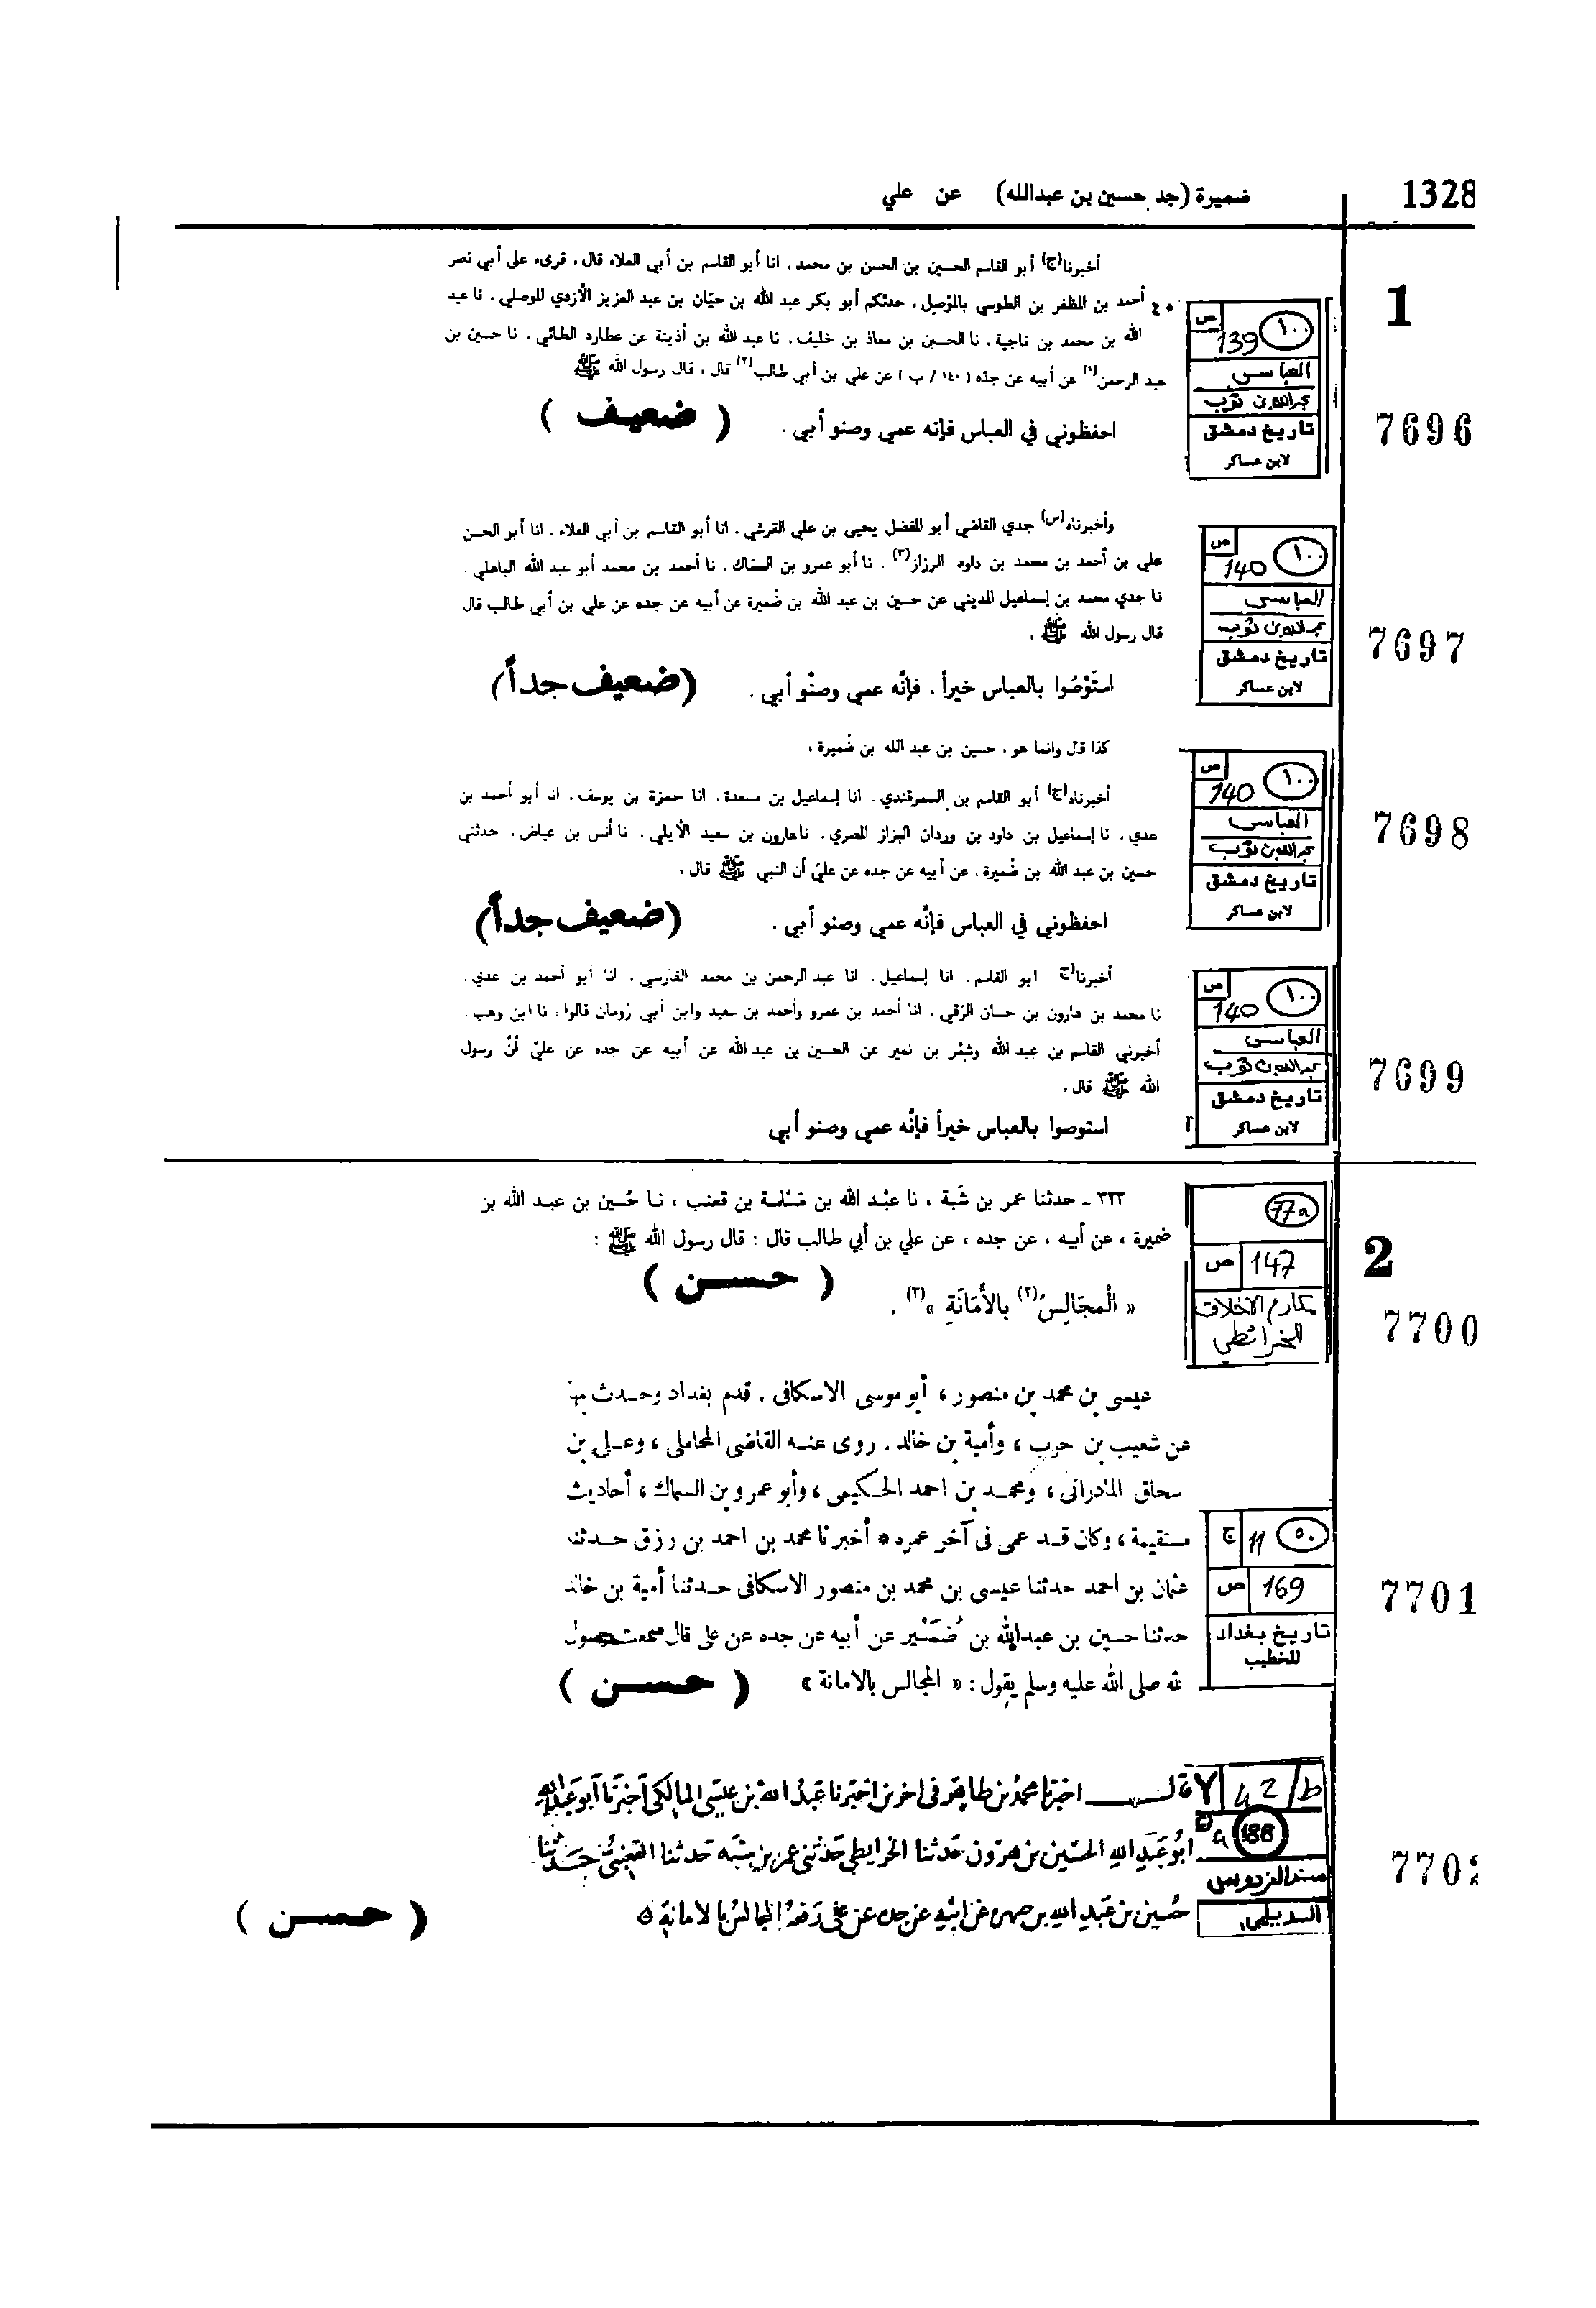 1328
ضميرة (جد حسين بن عبدالله) عن علي
1
أخبرنا(ج) أبو القاسم الحسين بن الحسن بن محمد، انا أبو القاسم بن أبي العلاء قال، قرىء على أبي نصر
٤٠ أحمد بن المظفر بن الطوسي بالموصل، حدثكم أبو بكر عبد الله بن حيّان بن عبد العزيز الأزدي الموصلي، نا عبد
الله بن محمد بن ناجية، نا الحسين بن معاذ بن خليف، نا عبد الله بن أذينة عن عطارد الطائي، نا حسين بن
عبد الرحمن(١) عن أبيه عن جدّه [١٤٠ / ب] عن علي بن أبي طالب(٢) قال، قال رسول الله ﷺ
احفظوني في العباس فإنه عمي وصنو أبي .
( ضعيف )
ص ١٠٠
139
العباسي
عبدالله بن ثوب
تاريخ دمشق
لابن عساكر
7696
وأخبرناه(س) جدي القاضي أبو المفضل يحيى بن علي القرشي، انا أبو القاسم بن أبي العلاء، انا أبو الحسن
علي بن أحمد بن محمد بن داود الرزاز(٣) ، نا أبو عمرو بن السماك، نا أحمد بن محمد أبو عبد الله الباهلي،
نا جدي محمد بن إسماعيل المديني عن حسين بن عبد الله بن ضُميرة عن أبيه عن جده عن علي بن أبي طالب قال
قال رسول الله ﷺ ،
استَوْصُوا بالعباس خيراً ، فإنّه عمي وصنْو أبي .
(ضعيف جداً)
ص ١٠٠
140
العباسي
عبدالله بن ثوب
تاريخ دمشق
لابن عساكر
7697
كذا قال وانما هو ، حسين بن عبد الله بن ضُميرة ،
أخبرناه(ج) أبو القاسم بن السمرقندي، انا إسماعيل بن مسعدة، انا حمزة بن يوسف، انا أبو أحمد بن
عدي، نا إسماعيل بن داود بن وردان البزاز المصري، نا هارون بن سعيد الأيلي، نا أنس بن عياض، حدثني
حسين بن عبد الله بن ضُميرة، عن أبيه عن جده عن عليّ أن النبي ﷺ قال،
احفظوني في العباس فإنّه عمي وصنو أبي .
(ضعيف جداً)
ص ١٠٠
140
العباسي
عبدالله بن ثوب
تاريخ دمشق
لابن عساكر
7698
أخبرنا(ج ابو القاسم، انا إسماعيل، انا عبد الرحمن بن محمد الفارسي، انا أبو أحمد بن عدي،
نا محمد بن هارون بن حسان الرَّقي، انا أحمد بن عمرو وأحمد بن سعيد وابن أبي رُومان قالوا، نا ابن وهب،
أخبرني القاسم بن عبد الله وشِمْر بن نمير عن الحسين بن عبد الله عن أبيه عن جده عن عليّ أنّ رسول
الله ﷺ قال،
استوصوا بالعباس خيراً فإنّه عمي وصنو أبي
ص ١٠٠
140
العباسي
عبدالله بن ثوب
تاريخ دمشق
لابن عساكر
7699
2
٣٢٣ - حدثنا عمر بن شَبة ، نا عبْد الله بن مَسْلمة بن قعنب ، نا حُسين بن عبد الله بن
ضميرة ، عن أبيه ، عن جده ، عن علي بن أبي طالب قال : قال رسول الله ﷺ :
« الْمجَالِسُ(٢) بالأمَانَةِ »(٣) .
( حسن )
77a
147 ص
مكارم الاخلاق
للخرائطي
7700
عيسى بن محمد بن منصور ، أبو موسى الاسكافى . قدم بغداد وحدث بها
عن شعيب بن حرب ، وأمية بن خالد . روى عنه القاضى المحاملى ، وعلى بن
سحاق المادرانى ، ومحمد بن احمد الحكيمى ، وأبو عمرو بن السماك ، أحاديث
مستقيمة ، وكان قد عمى فى آخر عمره * أخبرنا محمد بن احمد بن رزق حدثنا
عثمان بن احمد حدثنا عيسى بن محمد بن منصور الاسكافى حدثنا أمية بن خالد
حدثنا حسين بن عبد الله بن ضُمَيْر عن أبيه عن جده عن على قال سمعت رسول
لله صلى الله عليه وسلم يقول : « المجالس بالامانة »
( حسن )
٥٠ 11 ج
169 ص
تاريخ بغداد
للخطيب
7701
قالـــ اخبرنا محمد بن طاهر فى اخرين اخبرنا عبد الله بن عيسى المالكى أخبرنا أبو عبد الله
ابو عبد الله الحسين بن هرون حدثنا الخرايطى حدثنى عمر بن شبه حدثنا القعنبى حدثنا
حسين بن عبد الله بن ضميره عن ابيه عن جده عن على رفعه المجالس بالامانة ه
( حسن )
42/b
188
مسند الفردوس
الديلمي
770